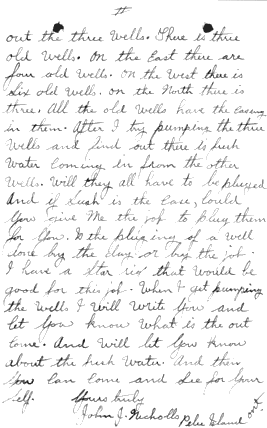 out the three Wells. There is three
old Wells. On the East there are
four old Wells. On the West there is
six old Wells. on the North there is
three. All the old Wells have the Casing
in them. After I try pumping the three
Wells and find out there is fresh
Water Coming in from the other
Wells. Will they all have to be plugged
And if Such is the Case, Could
You Give Me the job to Plug them
for You. Is the pluging of a well
done by the day or by the job.
I have a Star rig that would be
good for this job. When I get pumping
the Wells I Will Write You and
let You know what is the out
Come. And Will let You know
about the fresh Water. And then
You Can Come and See for Your
Self. Yours truly
John J. Nicholls Pelee Island Ont.